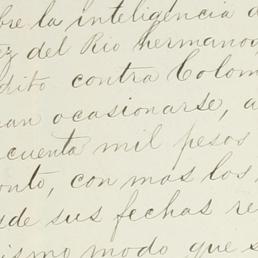 bre la inteligencia d
ez del Rio hermanos
dito contra Colom
an ocasionarse, a
cuenta mil pesos
onto, con mas los
sde sus fechas re
ismo modo que s